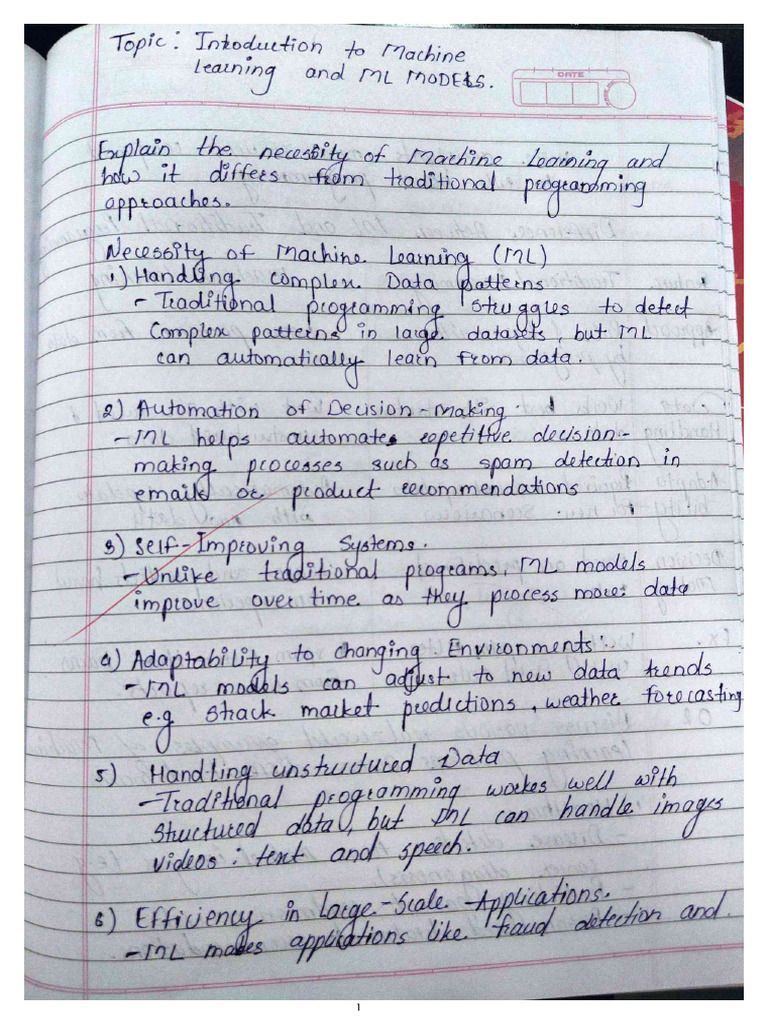 Topic: Introduction to Machine
Learning and ML MODELS.
DATE
Explain the necessity of Machine Learning and
how it differs from traditional programming
approaches.
Necessity of Machine Learning (ML)
1) Handling Complex Data patterns
- Traditional programming struggles to detect
Complex patterns in large datasets, but ML
can automatically learn from data.
2) Automation of Decision-Making.
- ML helps automates repetitive decision-
making processes such as spam detection in
emails or product recommendations
3) Self-Improving Systems.
- Unlike traditional programs, ML models
improve over time as they process more data
4) Adaptability to changing Environments.
- ML models can adjust to new data trends
e.g Strack market predictions, weather forecasting
5) Handling unstructured Data
- Traditional programming workes well with
structured data, but ML can handle images
videos: text and speech.
6) Efficiency in Large-Scale Applications.
- ML makes applications like fraud detection and
1